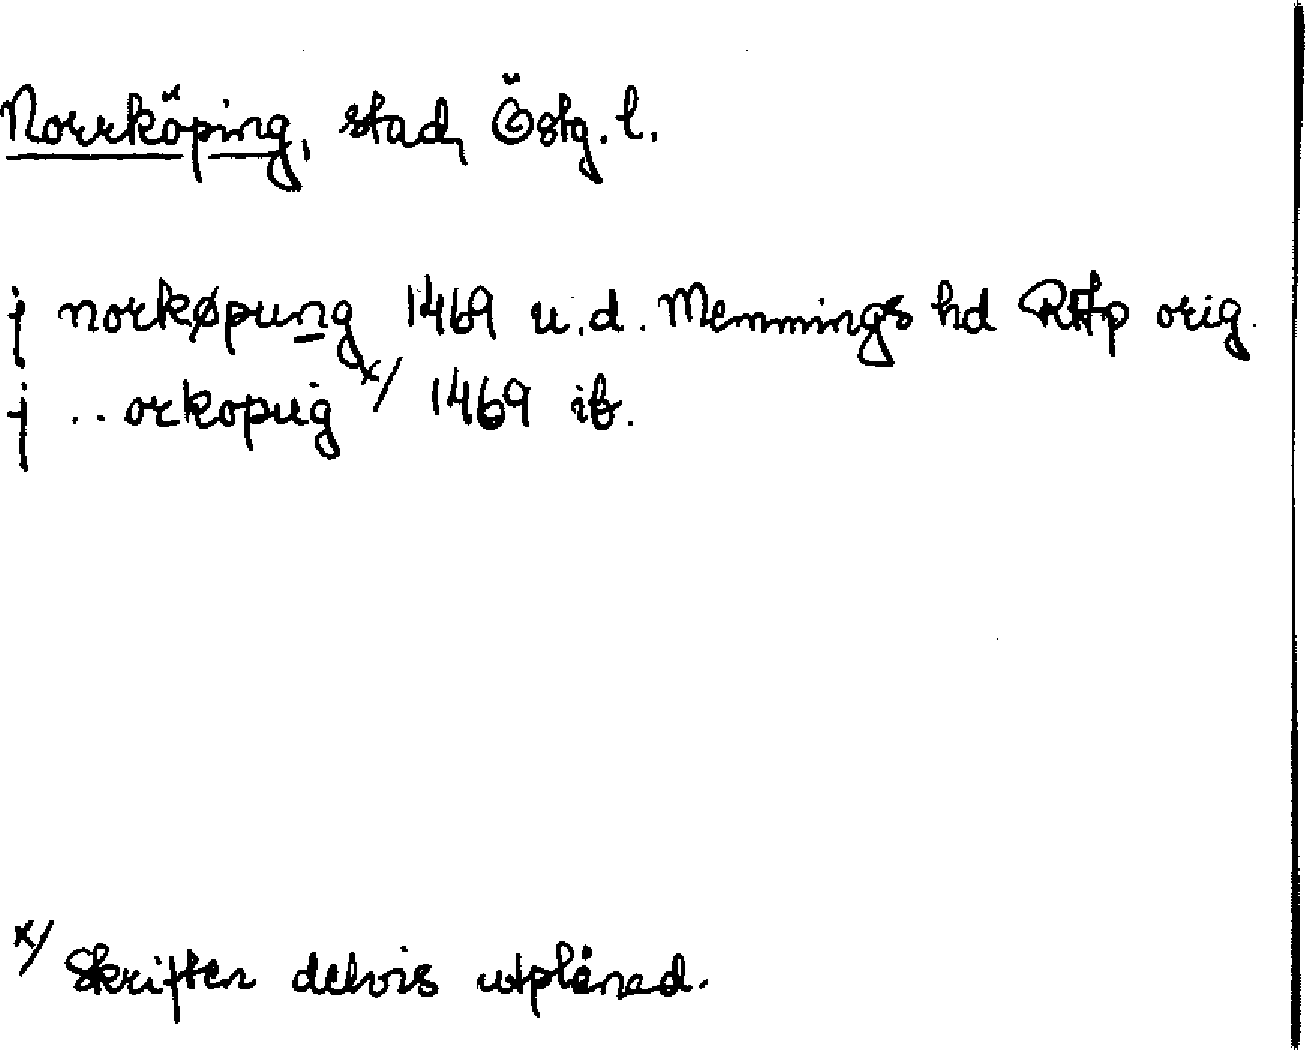 Norrköping, stad, Östg. l.
j norkøpung 1469 u.d. Memmings hd RAp orig.
j ..orkopug x/ 1469 ib.
x/ Skriften delvis utplånad.